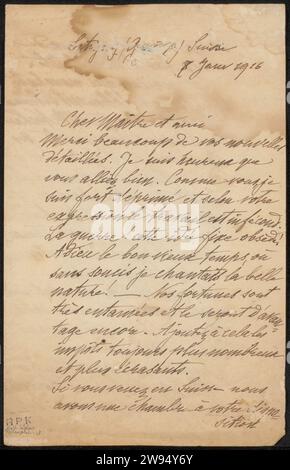 Satigny (Genève) Suisse
8 Janv 1916
Cher Maître et ami
Merci beaucoup de vos nouvelles
détaillées. Je suis heureux que
vous alliez bien. Comme vous je
suis fort déprimé et selon votre
expression travail est infécond.
La guerre cette idée fixe obsède!
Adieu le bon vieux temps, ou
sans soucis je chantais la belle
nature! — Nos fortunes sont
très entamées et le seront davan-
tage encor. Ajoutez à cela les
impôts toujours plus nombreux
et plus écrasants.
Si vous venez en Suisse nous
avons une chambre à votre
RPK
alamy
Image ID: 2W94Y6Y
www.alamy.com